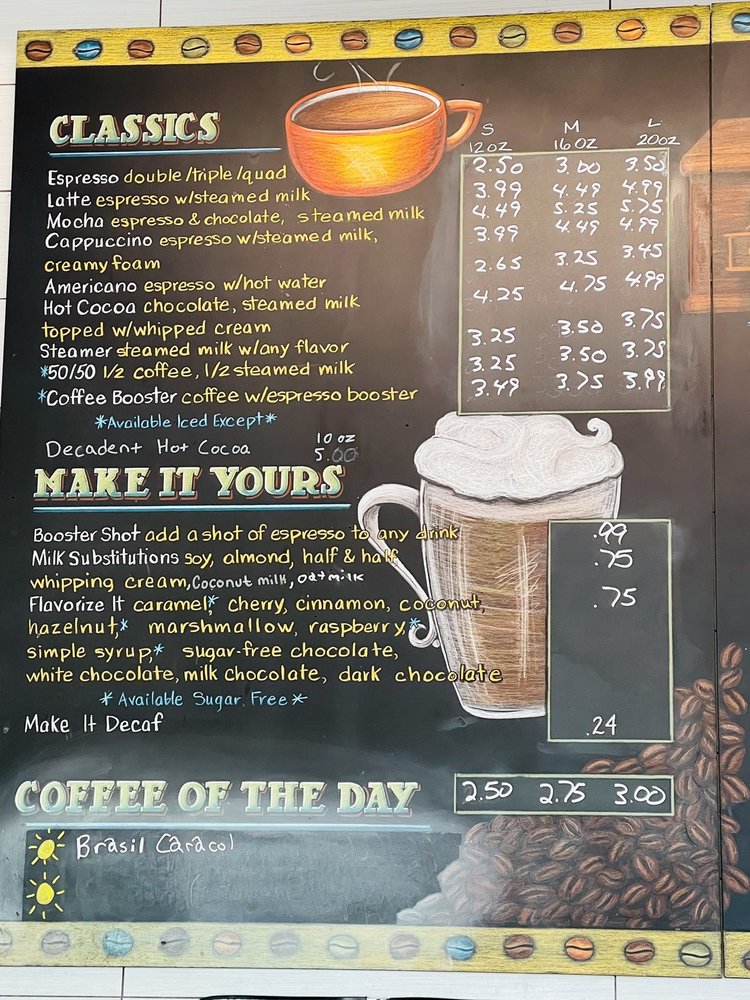 CLASSICS
S M L
12 OZ 16 OZ 20 OZ
Espresso double/triple/quad 2.50 3.00 3.50
Latte espresso w/steamed milk 3.99 4.49 4.99
Mocha espresso & chocolate, steamed milk 4.49 5.25 5.75
Cappuccino espresso w/steamed milk, 3.99 4.49 4.99
creamy foam
Americano espresso w/hot water 2.65 3.25 3.45
Hot Cocoa chocolate, steamed milk 4.25 4.75 4.99
topped w/whipped cream
Steamer steamed milk w/any flavor 3.25 3.50 3.75
*50/50 1/2 coffee, 1/2 steamed milk 3.25 3.50 3.75
*Coffee Booster coffee w/espresso booster 3.49 3.75 3.99
*Available Iced Except*
10 oz
Decadent Hot Cocoa 5.00
MAKE IT YOURS
Booster Shot add a shot of espresso to any drink .99
Milk Substitutions soy, almond, half & half, .75
whipping cream, Coconut milk, oat milk
Flavorize It caramel,* cherry, cinnamon, coconut, .75
hazelnut,* marshmallow, raspberry,*
simple syrup,* sugar-free chocolate,
white chocolate, milk chocolate, dark chocolate
*Available Sugar Free*
Make It Decaf .24
COFFEE OF THE DAY 2.50 2.75 3.00
Brasil Caracol